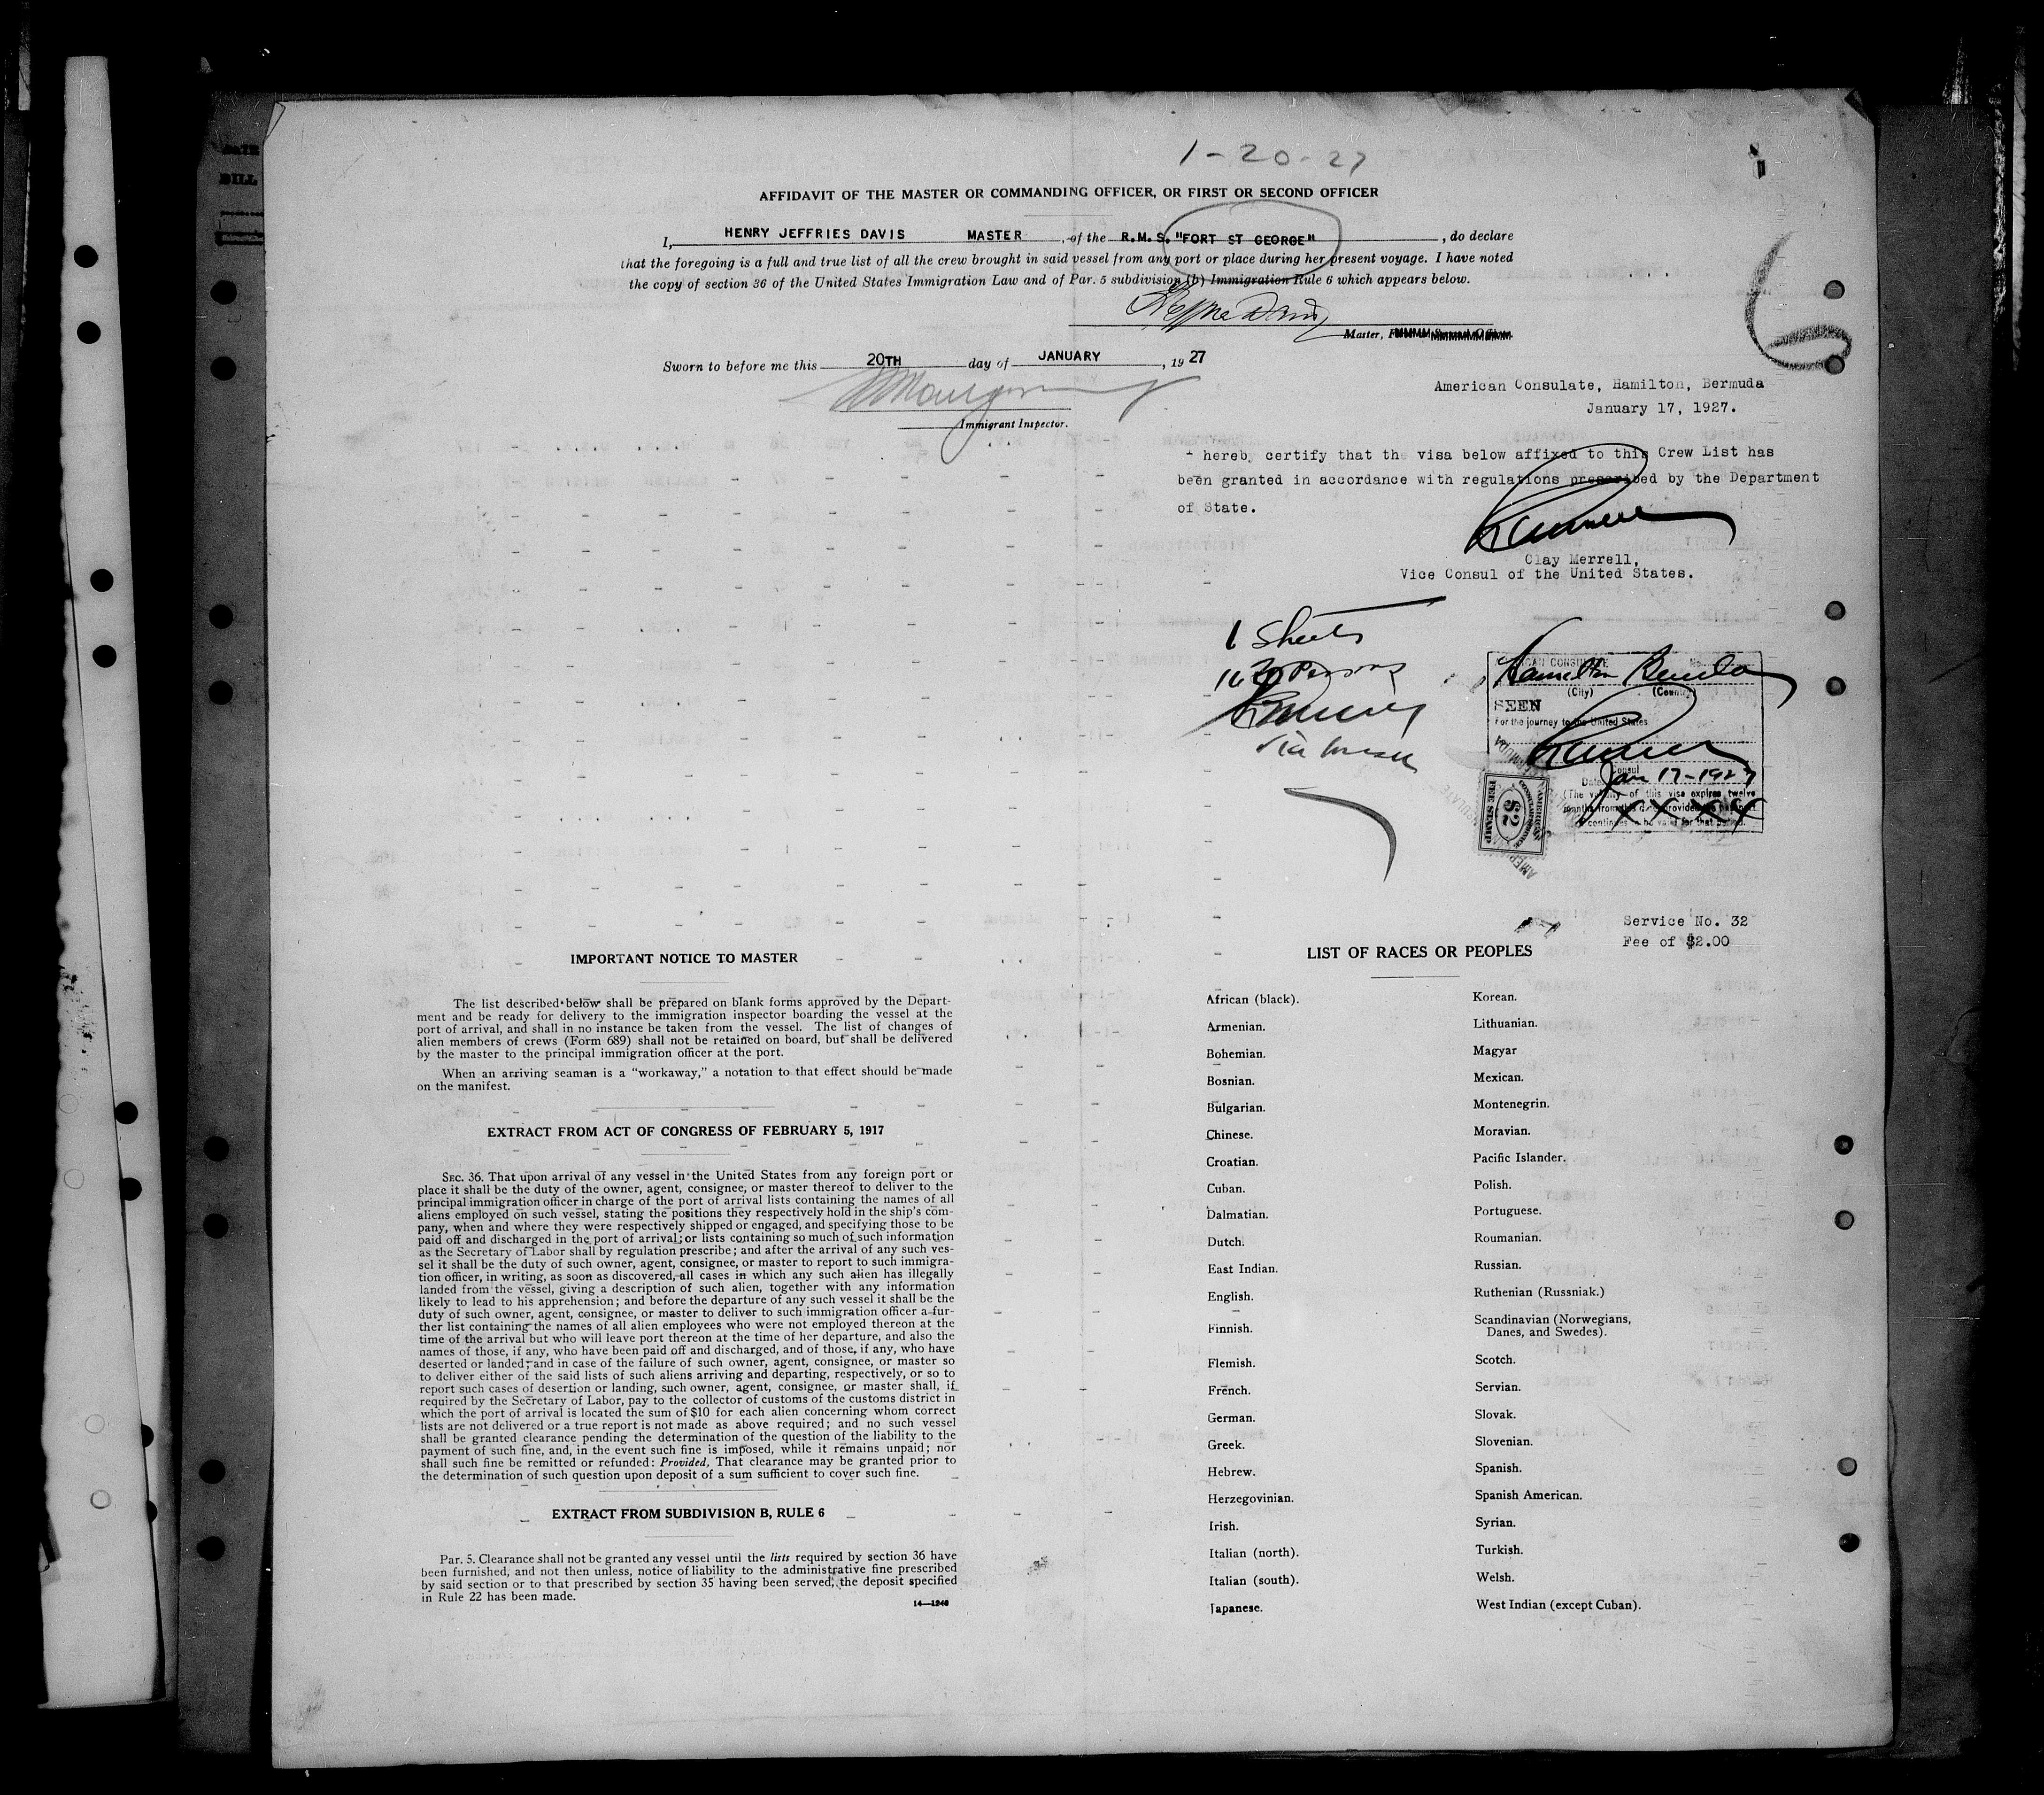 1-20-27
AFFIDAVIT OF THE MASTER OR COMMANDING OFFICER, OR FIRST OR SECOND OFFICER
I, HENRY JEFFRIES DAVIS MASTER, of the R.M.S. "FORT ST GEORGE", do declare
that the foregoing is a full and true list of all the crew brought in said vessel from any port or place during her present voyage. I have noted
the copy of section 36 of the United States Immigration Law and of Par. 5 subdivision (b) Immigration Rule 6 which appears below.
Master,
Sworn to before me this 20TH day of JANUARY, 1927
Immigrant Inspector.
American Consulate, Hamilton, Bermuda
January 17, 1927.
hereby certify that the visa below affixed to this Crew List has
been granted in accordance with regulations prescribed by the Department
of State.
Clay Merrell,
Vice Consul of the United States.
Sheets
Persons
AMERICAN CONSULATE No.
Hamilton Bermuda
(City) (Country)
SEEN
For the journey to the United States
Consul
Date Jan 17-1927
(The validity of this visa expires twelve
months from this date provided
continues to be valid for that period.
XXXX
AMERICAN
CONSULAR SERVICE
$2
FEE STAMP
Service No. 32
Fee of $2.00
IMPORTANT NOTICE TO MASTER
The list described below shall be prepared on blank forms approved by the Depart-
ment and be ready for delivery to the immigration inspector boarding the vessel at the
port of arrival, and shall in no instance be taken from the vessel. The list of changes of
alien members of crews (Form 689) shall not be retained on board, but shall be delivered
by the master to the principal immigration officer at the port.
When an arriving seaman is a "workaway," a notation to that effect should be made
on the manifest.
EXTRACT FROM ACT OF CONGRESS OF FEBRUARY 5, 1917
SEC. 36. That upon arrival of any vessel in the United States from any foreign port or
place it shall be the duty of the owner, agent, consignee, or master thereof to deliver to the
principal immigration officer in charge of the port of arrival lists containing the names of all
aliens employed on such vessel, stating the positions they respectively hold in the ship's com-
pany, when and where they were respectively shipped or engaged, and specifying those to be
paid off and discharged in the port of arrival; or lists containing so much of such information
as the Secretary of Labor shall by regulation prescribe; and after the arrival of any such ves-
sel it shall be the duty of such owner, agent, consignee, or master to report to such immigra-
tion officer, in writing, as soon as discovered, all cases in which any such alien has illegally
landed from the vessel, giving a description of such alien, together with any information
likely to lead to his apprehension; and before the departure of any such vessel it shall be the
duty of such owner, agent, consignee, or master to deliver to such immigration officer a fur-
ther list containing the names of all alien employees who were not employed thereon at the
time of the arrival but who will leave port thereon at the time of her departure, and also the
names of those, if any, who have been paid off and discharged, and of those, if any, who have
deserted or landed; and in case of the failure of such owner, agent, consignee, or master so
to deliver either of the said lists of such aliens arriving and departing, respectively, or so to
report such cases of desertion or landing, such owner, agent, consignee, or master shall, if
required by the Secretary of Labor, pay to the collector of customs of the customs district in
which the port of arrival is located the sum of $10 for each alien concerning whom correct
lists are not delivered or a true report is not made as above required; and no such vessel
shall be granted clearance pending the determination of the question of the liability to the
payment of such fine, and, in the event such fine is imposed, while it remains unpaid; nor
shall such fine be remitted or refunded: Provided, That clearance may be granted prior to
the determination of such question upon deposit of a sum sufficient to cover such fine.
EXTRACT FROM SUBDIVISION B, RULE 6
Par. 5. Clearance shall not be granted any vessel until the lists required by section 36 have
been furnished, and not then unless, notice of liability to the administrative fine prescribed
by said section or to that prescribed by section 35 having been served, the deposit specified
in Rule 22 has been made.
14—1240
LIST OF RACES OR PEOPLES
African (black).
Armenian.
Bohemian.
Bosnian.
Bulgarian.
Chinese.
Croatian.
Cuban.
Dalmatian.
Dutch.
East Indian.
English.
Finnish.
Flemish.
French.
German.
Greek.
Hebrew.
Herzegovinian.
Irish.
Italian (north).
Italian (south).
Japanese.
Korean.
Lithuanian.
Magyar
Mexican.
Montenegrin.
Moravian.
Pacific Islander.
Polish.
Portuguese.
Roumanian.
Russian.
Ruthenian (Russniak.)
Scandinavian (Norwegians,
Danes, and Swedes).
Scotch.
Servian.
Slovak.
Slovenian.
Spanish.
Spanish American.
Syrian.
Turkish.
Welsh.
West Indian (except Cuban).